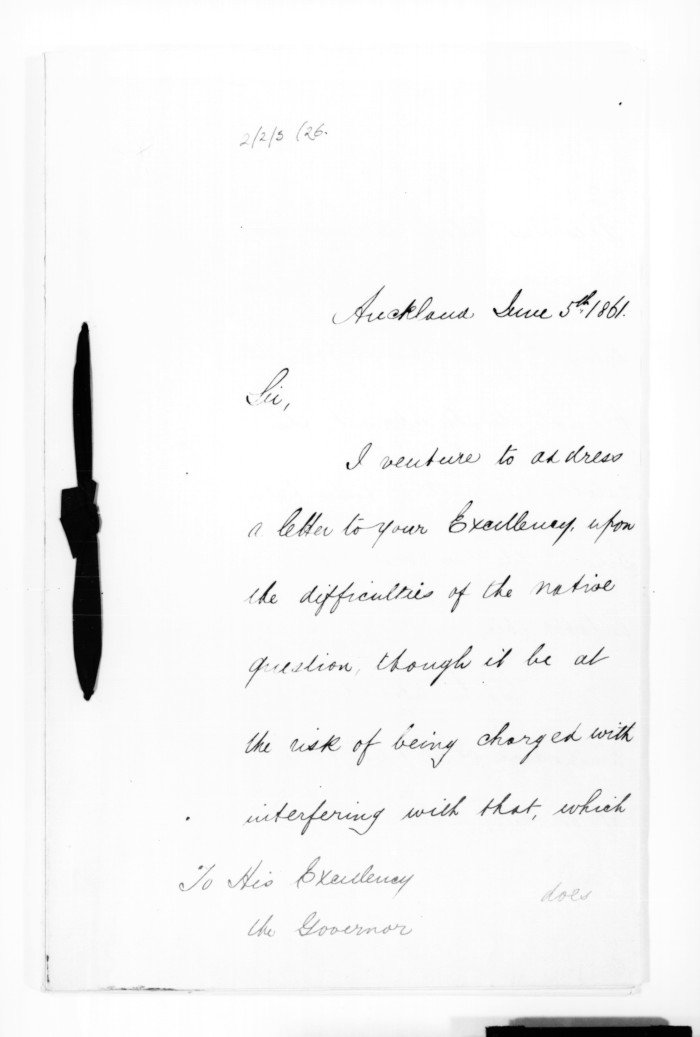 2/2/5 (26.
Auckland June 5th. 1861.
Sir,
I venture to address
a letter to your Excellency, upon
the difficulties of the native
question, though it be at
the risk of being charged with
interfering with that, which
To His Excellency
does
the Governor